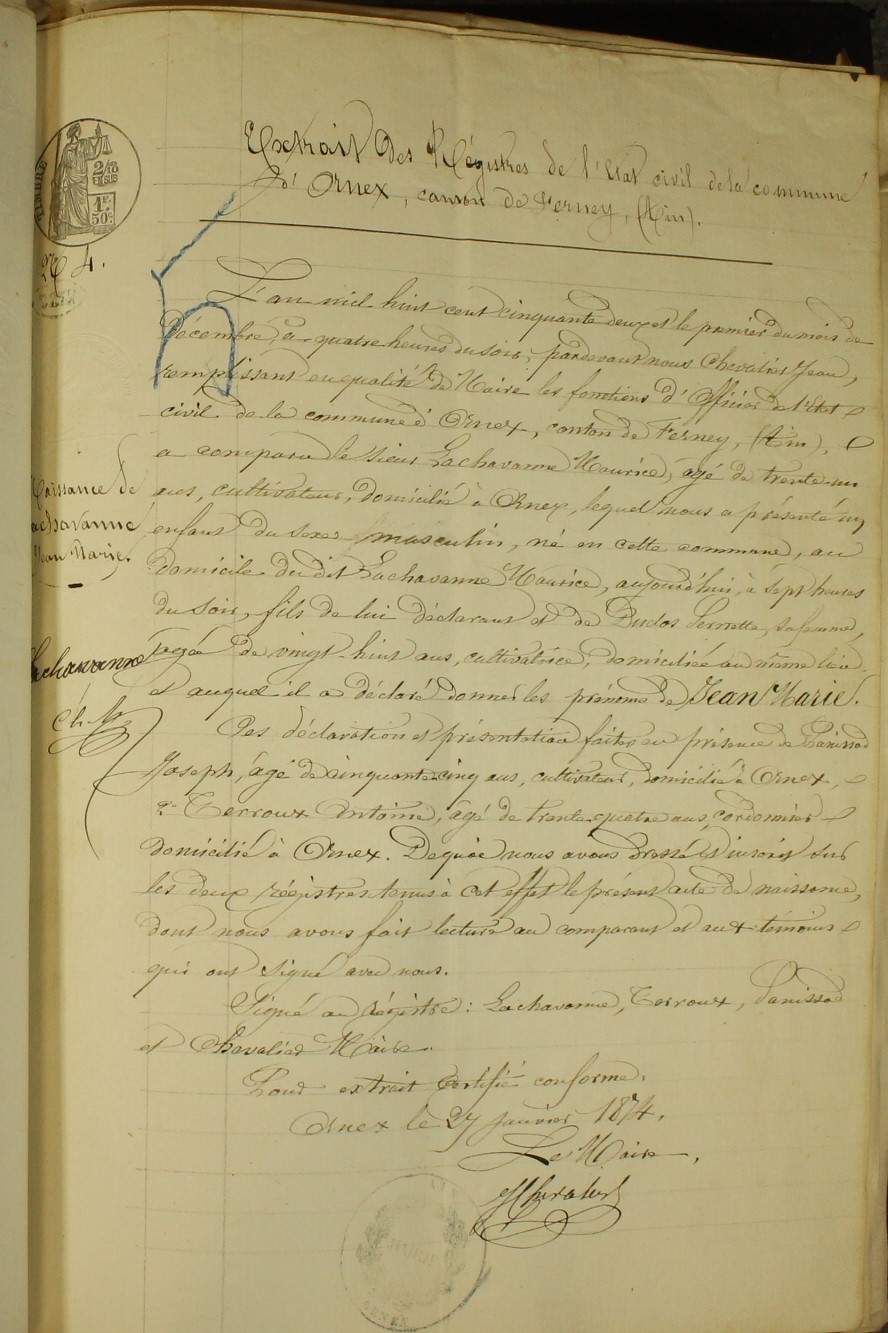 Extrait des Régistres de l'Etat civil de la commune
d'Ornex, canton de Ferney, (Ain).
2/10
EN SUS
1F.
50c.
4.
L'an mil huit cent cinquante deux et le premier du mois de
Décembre, à quatre heures du soir, pardevant nous Chevalier Jean,
remplissant en qualité de Maire les fonctions d'Officier de l'Etat
civil de la commune d'Ornex, canton de Ferney, (Ain),
a comparu le sieur Lachavanne Maurice, âgé de trente-un
ans, cultivateur, domicilié à Ornex, lequel nous a présenté un
enfant du sexe masculin, né en cette commune, au
domicile du dit Lachavanne Maurice, aujourd'hui, à sept heures
du soir, fils de lui déclarant et de Duclos Pernette, sa femme,
agée de vingt-huit ans, cultivatrice, domiciliée au même lieu
et auquel il a déclaré donner les prénoms de Jean Marie.
Naissance de
Lachavanne
Jean Marie.
Lachavanne
Ces déclaration et présentation faites en présence de Panissod
Joseph, âgé de cinquante-cinq ans, cultivateur, domicilié à Ornex,
et Terroux Antoine, âgé de trente-quatre ans, cordonnier
domicilié à Ornex. De quoi nous avons dressé et inscrit sur
les deux régistres tenus à cet effet le présent acte de naissance,
dont nous avons fait lecture au comparant et aux témoins
qui ont signé avec nous.
Signé au régistre: Lachavanne, Terroux, Panissod
et Chevalier Maire.
Pour extrait certifié conforme.
Ornex le 27 janvier 1874.
Le Maire,